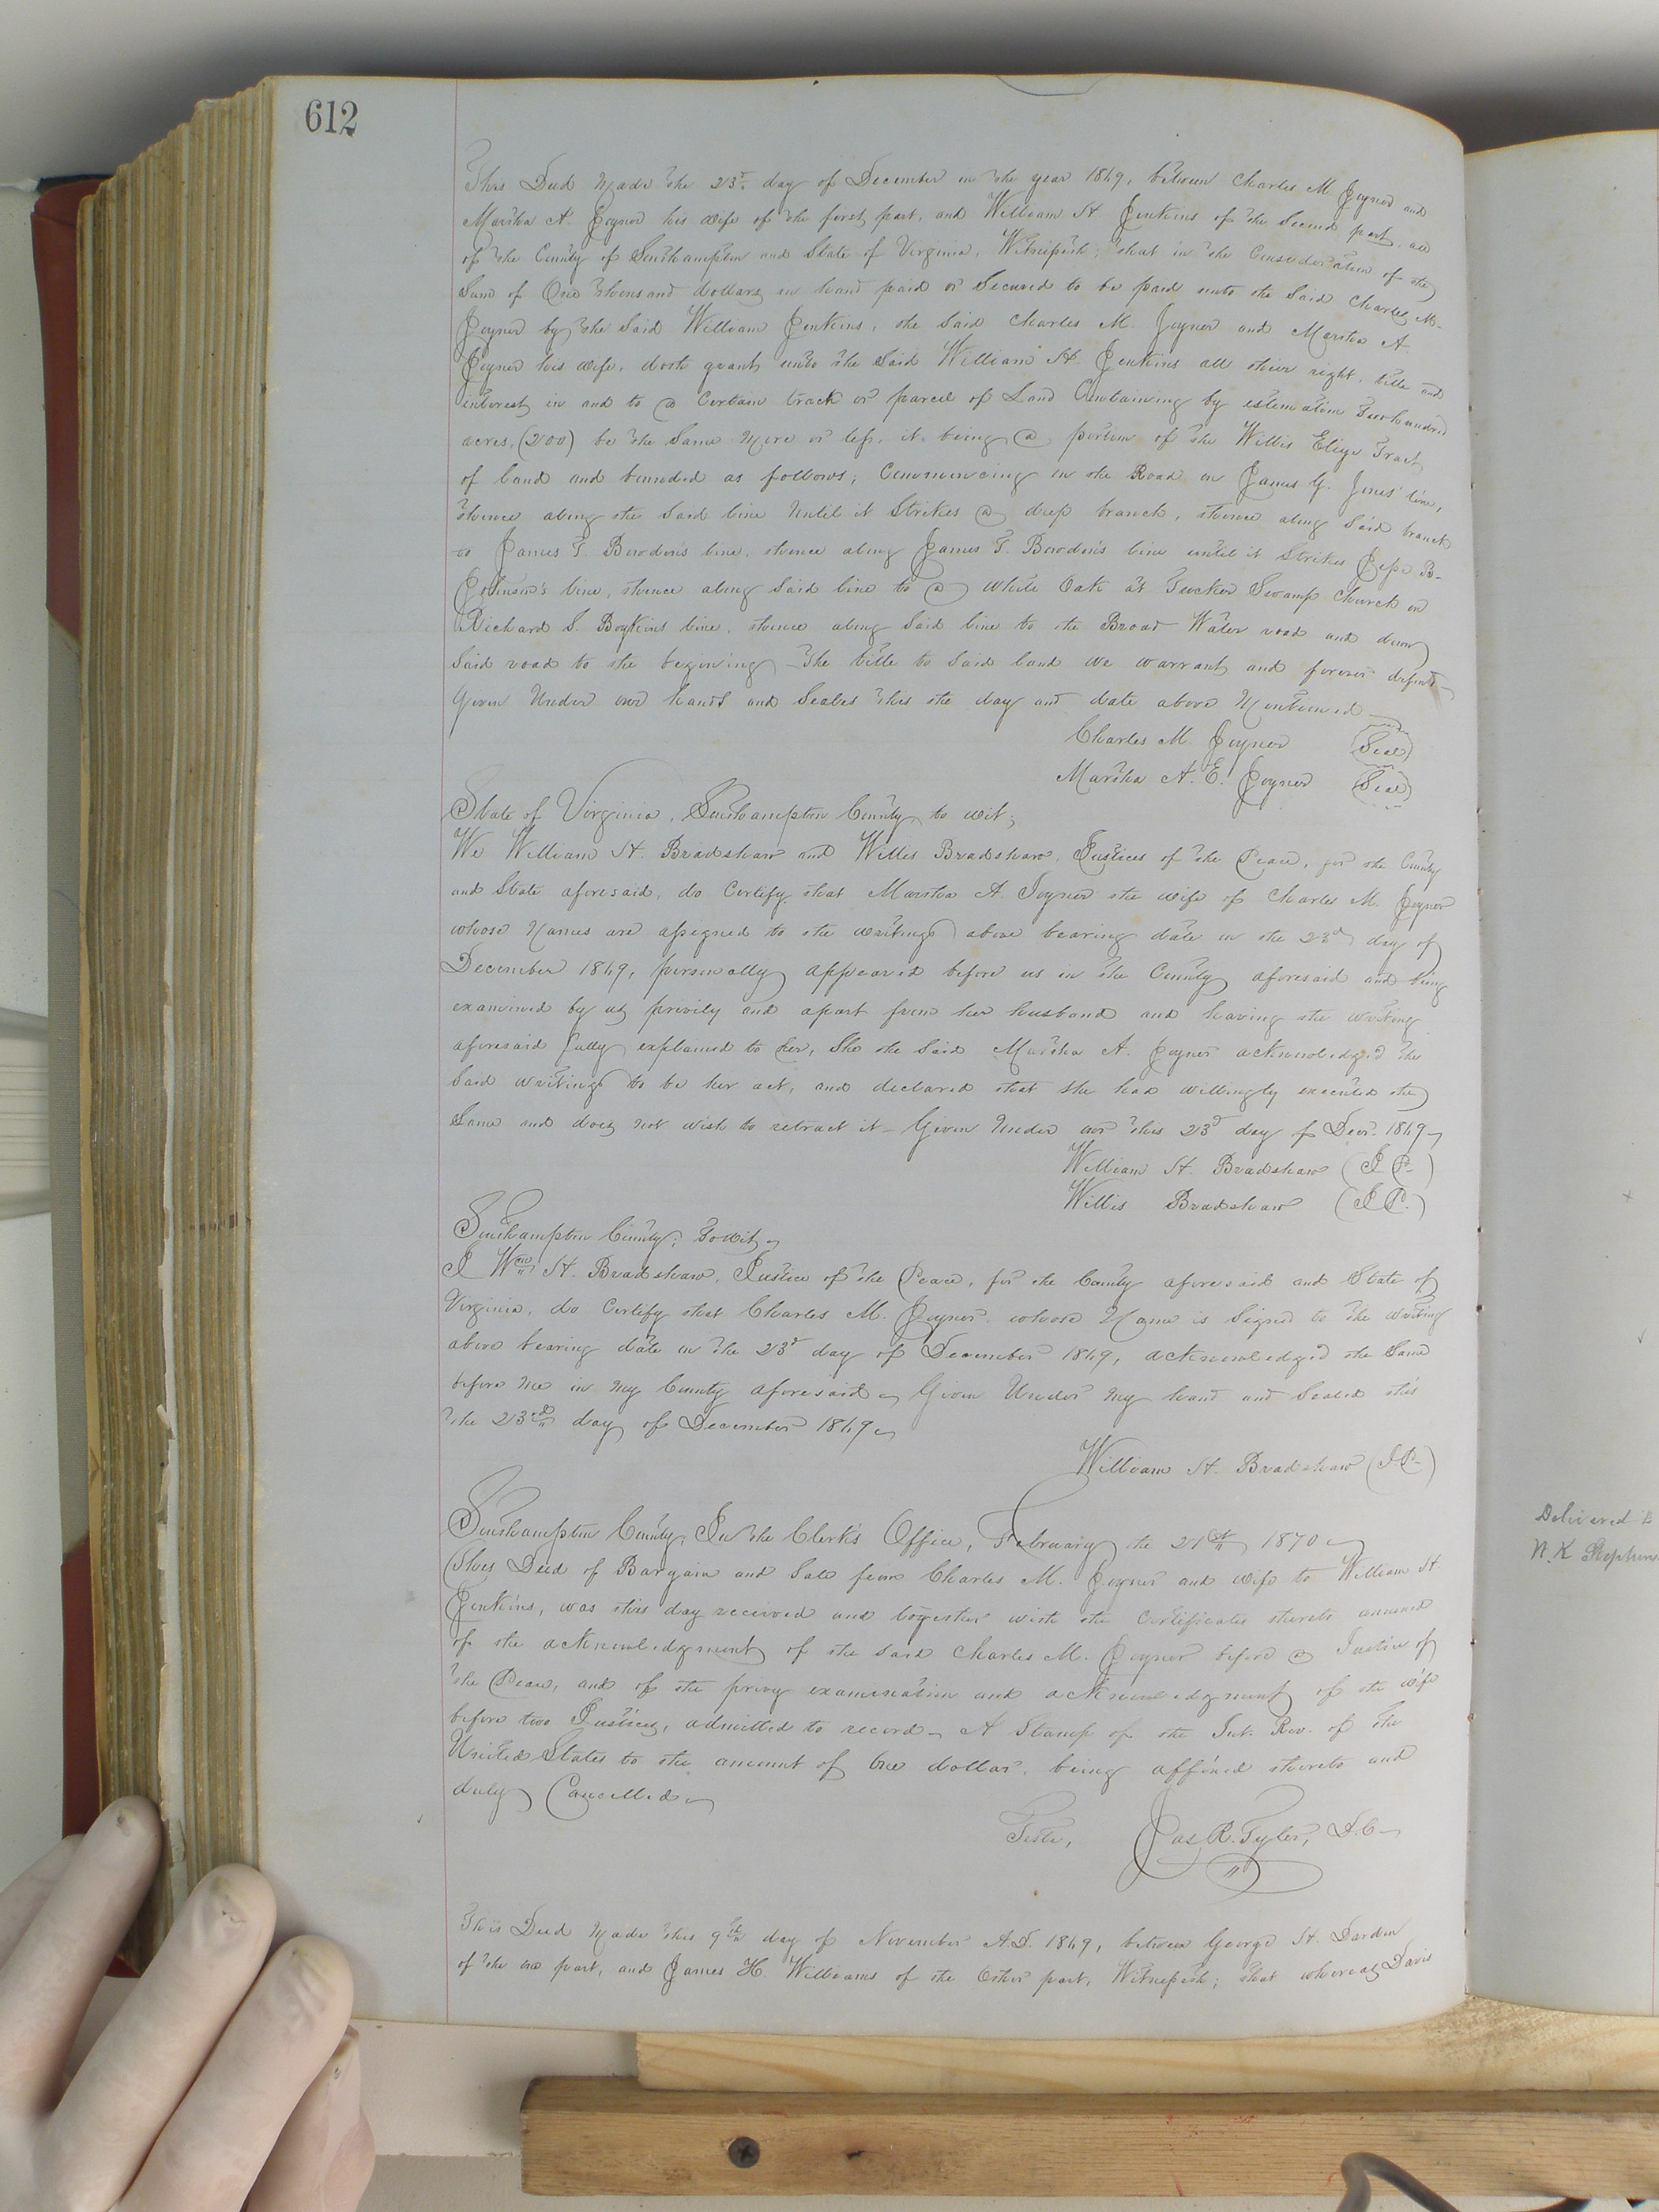 612
This Deed Made the 23d. day of December in the year 1869, between Charles M Joyner and
Martha A. Joyner his wife of the first part, and William H. Jenkins of the Second part, all
of the County of Southampton and State of Virginia, Witnesseth; that in the Consideration of the
Sum of One thousand dollars in hand paid or Secured to be paid unto the Said Charles M.
Joyner by the Said William Jenkins, the Said Charles M. Joyner and Martha A.
Joyner his wife, doth grant unto the Said William H. Jenkins all their right, title and
interest in and to a Certain track or parcel of Land Containing by estimation Two hundred
acres, (200) be the Same More or less, it being a portion of the Willis Tract
of land and bounded as follows; Commencing in the Road on James G. Jones' line,
thence along the Said line Until it Strikes a deep branch, thence along Said branch
to James T. Bowden's line, thence along James T. Bowden's line until it Strikes Jesse B.
Johnson's line, thence along Said line to a White Oak at Tucker Swamp Church on
Richard S. Boykins line, thence along Said line to the Broad Water road and down
Said road to the begining The title to Said land we warrant and forever defend
Given Under our hands and Seales this the day and date above Mentioned
Charles M. Joyner (Seal)
Martha A. E. Joyner (Seal)
State of Virginia, Southampton County, to wit;
We William H. Bradshaw and Willis Bradshaw, Justices of the Peace, for the County
and State aforesaid, do Certify that Martha A. Joyner the wife of Charles M. Joyner
whose Names are assigned to the writings above bearing date on the 23d day of
December 1869, personally appeared before us in the County aforesaid and being
examined by us privily and apart from her husband and having the writing
aforesaid fully explained to her, She the Said Martha A. Joyner acknowledged the
Said writings to be her act, and declared that She had willingly executed the
Same and does not wish to retract it - Given Under our this 23d day of Decr. 1869
William H. Bradshaw (J.P.)
Willis Bradshaw (J.P.)
Southampton County; Towit,
I Wm H. Bradshaw, Justice of the Peace, for the County aforesaid and State of
Virginia, do Certify that Charles M. Joyner, whose Name is Signed to the writing
above bearing date on the 23d day of December 1869, acknowledged the Same
before me in my County aforesaid Given Under my hand and Sealed this
the 23rd day of December 1869
William H. Bradshaw (J.P.)
Southampton County; In the Clerk's Office, February the 21st 1870
This Deed of Bargain and Sale from Charles M. Joyner and wife to William H.
Jenkins, was this day received and together with the Certificates thereto annexed
of the acknowledgment of the said Charles M. Joyner before a Justice of
the Peace, and of the privy examination and acknowledgment of the wife
before two Justices, admitted to record - A Stamp of the Int. Rev. of the
United States to the amount of One dollar, being affixed thereto and
duly Cancelled
Teste, Jas R. Tyler, D.C.
This Deed Made this 9th day of November A.D. 1869, between George H. Darden
of the one part, and James H. Williams of the Other part, Witnesseth; that whereas Davis
Delivered to
N.K Stephens